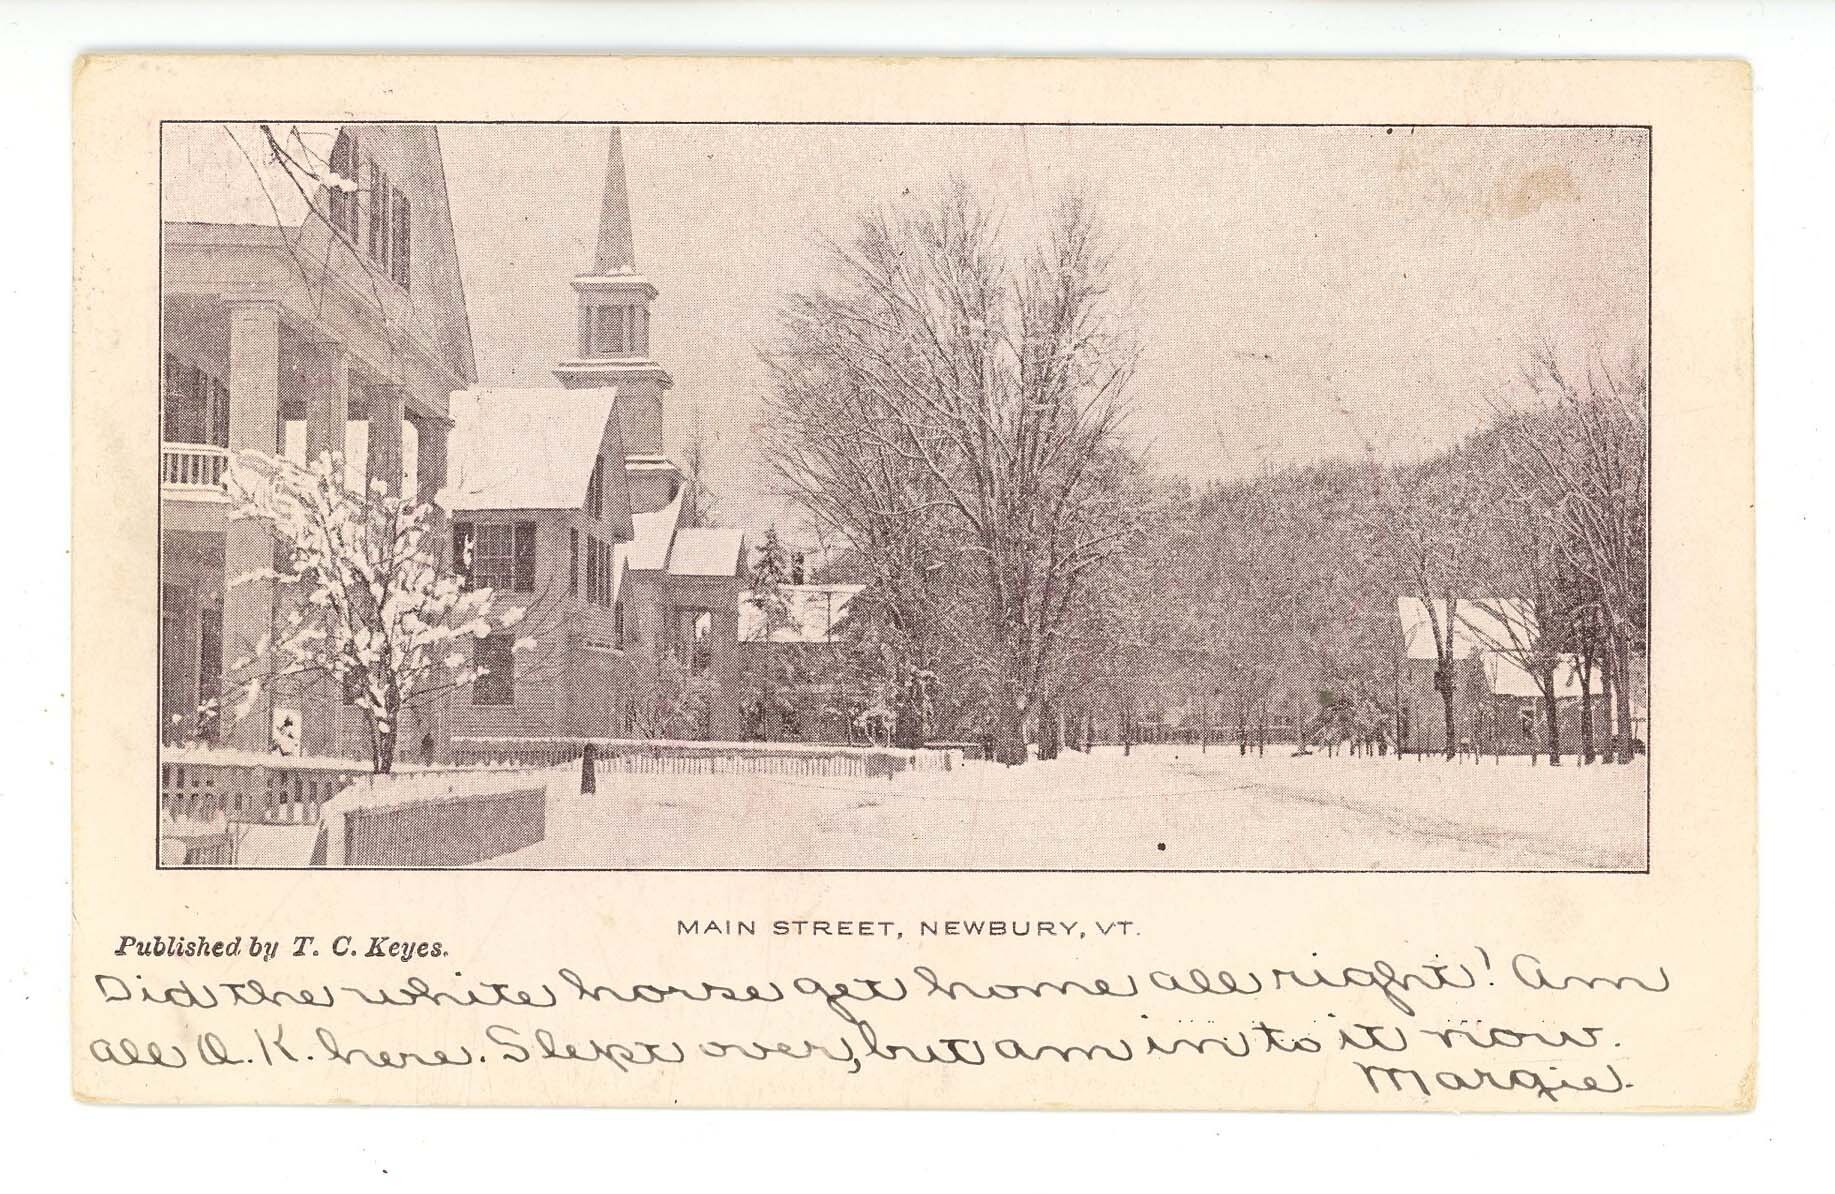 MAIN STREET, NEWBURY, VT.
Published by T. C. Keyes.
Did the white horse get home all right? Am
all O.K. here. Slept over, but am in to it now.
Margie.